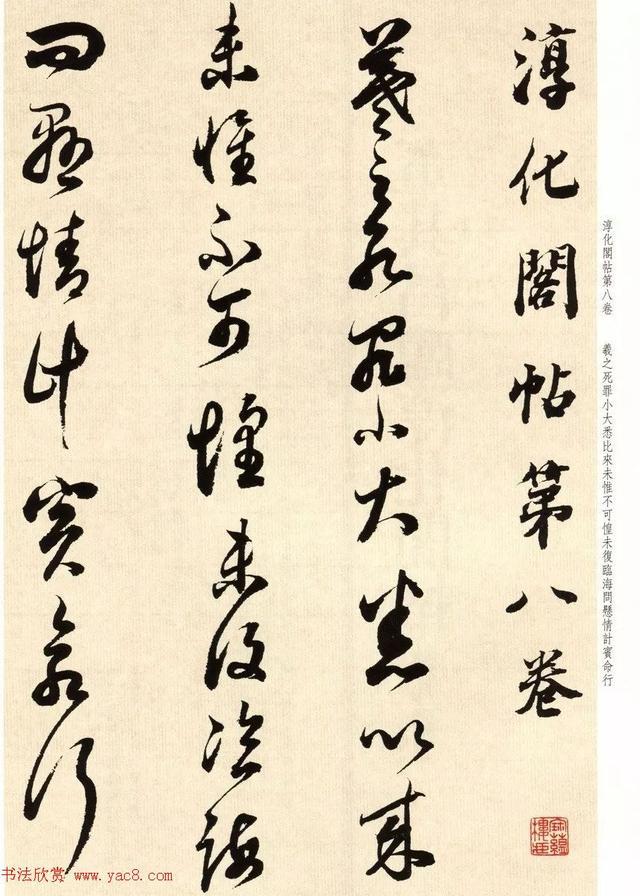 淳化閣帖第八卷
羲之死罪小大悉比來
未惟不可惶未復臨海
問懸情計賓命行
淳化閣帖第八卷 羲之死罪小大悉比來未惟不可惶未復臨海問懸情計賓命行
书法欣赏 www.yac8.com